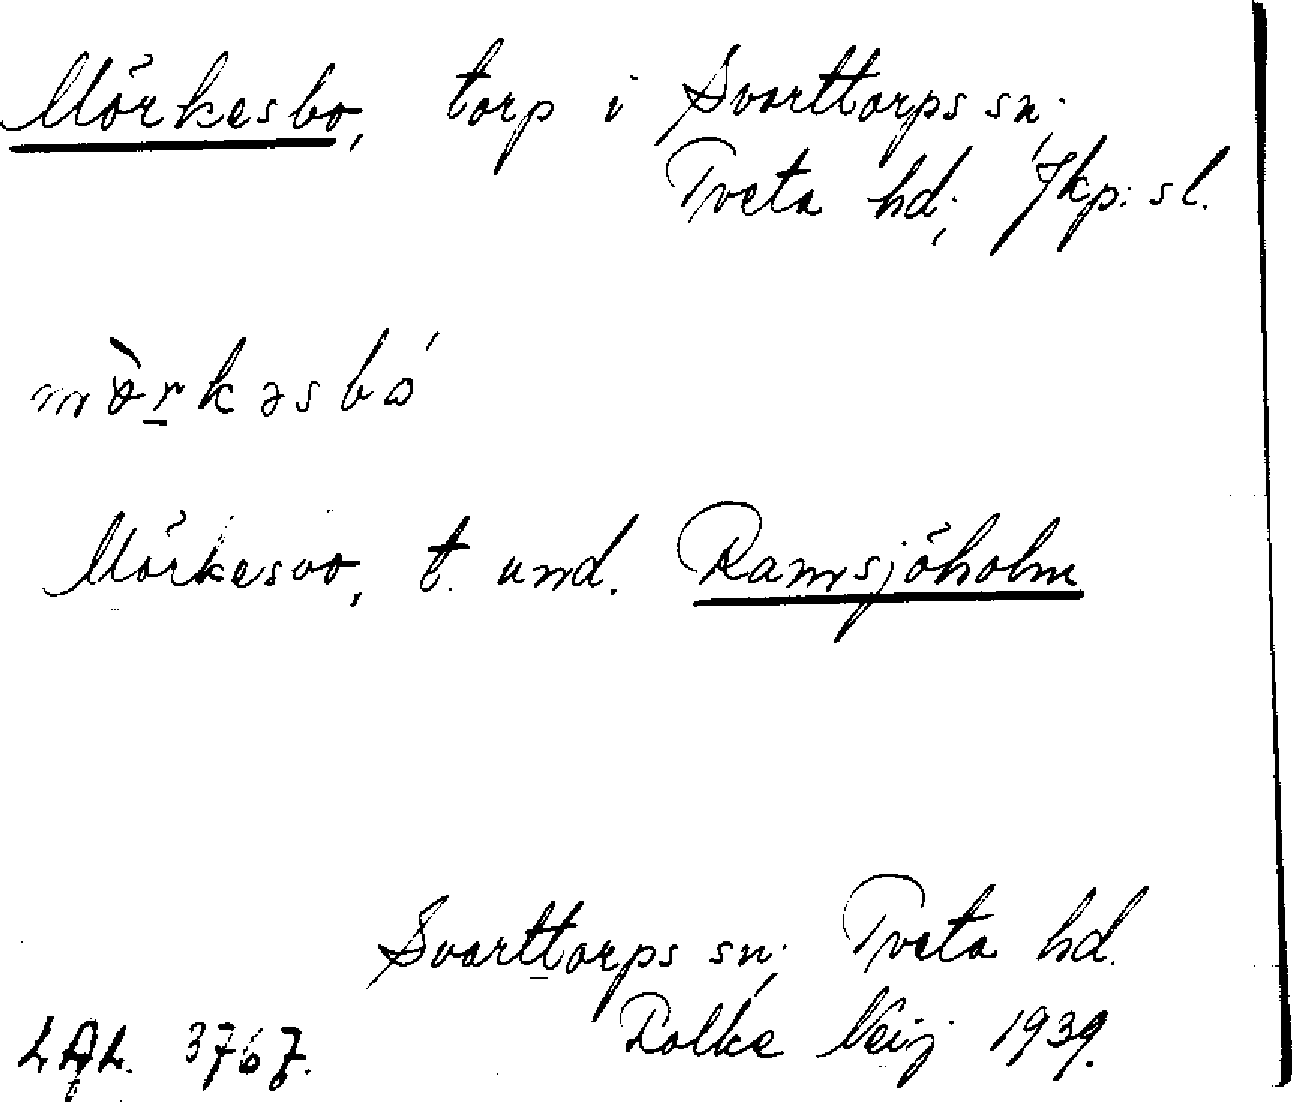 Mörkesbo, torp i Svarttorps sn;
Tveta hd; Jkp: sl.
mòrkəsbó
Mörkesvo, t. und. Ramsjöholm
Svarttorps sn; Tveta hd.
1939.
LAL. 3767.